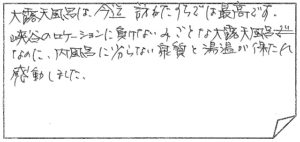 大露天風呂は、今迄訪ねたうちでは最高です。
峡谷のロケーションに負けないみごとな大露天風呂で
なのに、内風呂に劣らない泉質と湯温が保たれ
感動しました。